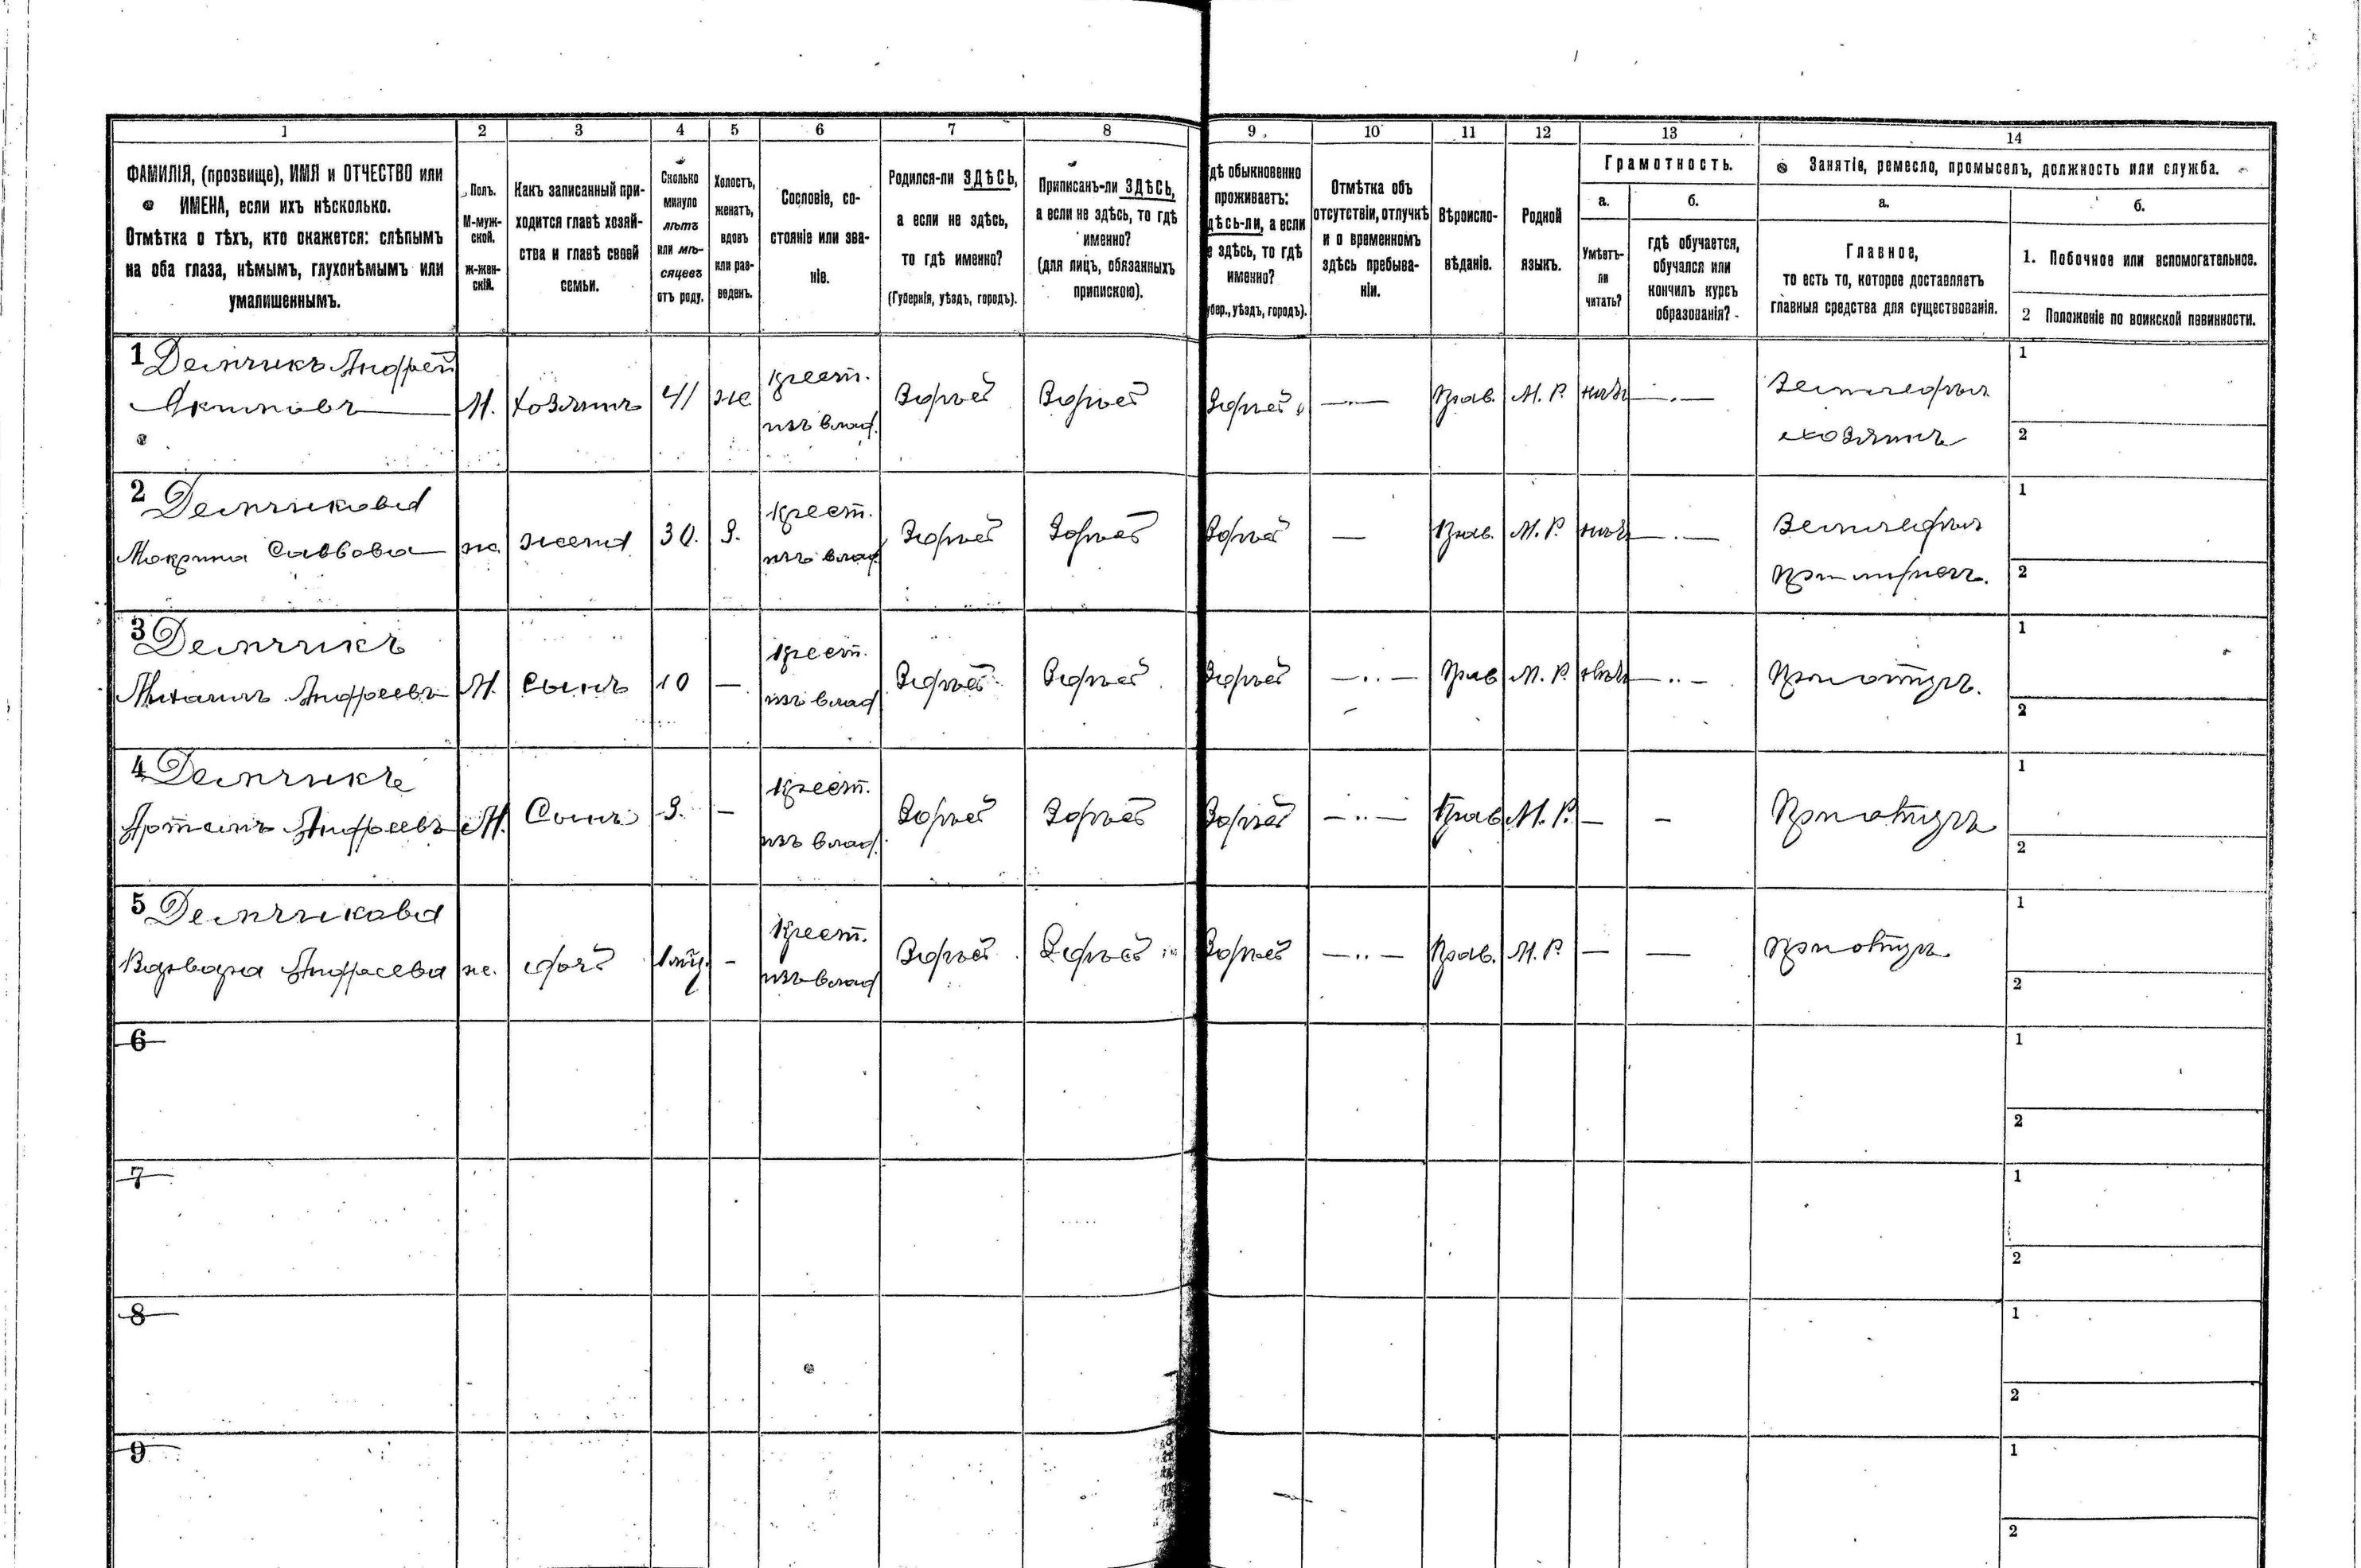 1
2
3
4
5
6
7
8
9
10
11
12
13
14
ФАМИЛІЯ, (прозвище), ИМЯ и ОТЧЕСТВО или
ИМЕНА, если ихъ нѣсколько.
Отмѣтка о тѣхъ, кто окажется: слѣпымъ
на оба глаза, нѣмымъ, глухонѣмымъ или
умалишеннымъ.
Полъ.
М-муж-
ской.
Ж-жен-
скій.
Какъ записанный при-
ходится главѣ хозяй-
ства и главѣ своей
семьи.
Сколько
минуло
лѣтъ
или мѣ-
сяцевъ
отъ роду.
Холостъ,
женатъ,
вдовъ
или раз-
веденъ.
Сословіе, со-
стояніе или зва-
ніе.
Родился-ли ЗДѢСЬ,
а если не здѣсь,
то гдѣ именно?
(Губернія, уѣздъ, городъ).
Приписанъ-ли ЗДѢСЬ,
а если не здѣсь, то гдѣ
именно?
(для лицъ, обязанныхъ
припискою).
дѣ обыкновенно
проживаетъ:
дѣсь-ли, а если
е здѣсь, то гдѣ
именно?
убер., уѣздъ, городъ).
Отмѣтка объ
отсутствіи, отлучкѣ
и о временномъ
здѣсь пребыва-
ніи.
Вѣроиспо-
вѣданіе.
Родной
языкъ.
Грамотность.
а.
Умѣетъ-
ли
читать?
б.
гдѣ обучается,
обучался или
кончилъ курсъ
образованія?
Занятіе, ремесло, промыселъ, должность или служба.
а.
Главное,
то есть то, которое доставляетъ
главныя средства для существованія.
б.
1. Побочное или вспомогательное.
2 Положеніе по воинской повинности.
1 Демчикъ Андрей
Якимовъ
М. хозяинъ 41 же крест.
изъ влад.
Здѣсь Здѣсь Здѣсь — Прав. М. Р. нѣтъ —
Земледѣл.
хозяинъ
1
2
2 Демчикова
Мокрина Саввова
ж. жена 30. З. крест.
изъ влад.
Здѣсь Здѣсь Здѣсь — Прав. М. Р. нѣтъ —
Земледѣл.
1
2
3 Демчикъ
Михаилъ Андреевъ
М. сынъ 10 — крест.
изъ влад
Здѣсь Здѣсь Здѣсь — Прав М. Р. нѣтъ —
При отцѣ.
1
2
4 Демчикъ
Андреевъ
М. Сынъ 3. — крест.
изъ влад.
Здѣсь Здѣсь Здѣсь — Прав М. Р. — —
При отцѣ
1
2
5 Демчикова
Варвара Андреева
ж. дочь 1 мѣ. — крест.
изъ влад
Здѣсь Здѣсь Здѣсь — Прав. М. Р. — —
При отцѣ
1
2
6
1
2
7
1
2
8
1
2
9
1
2